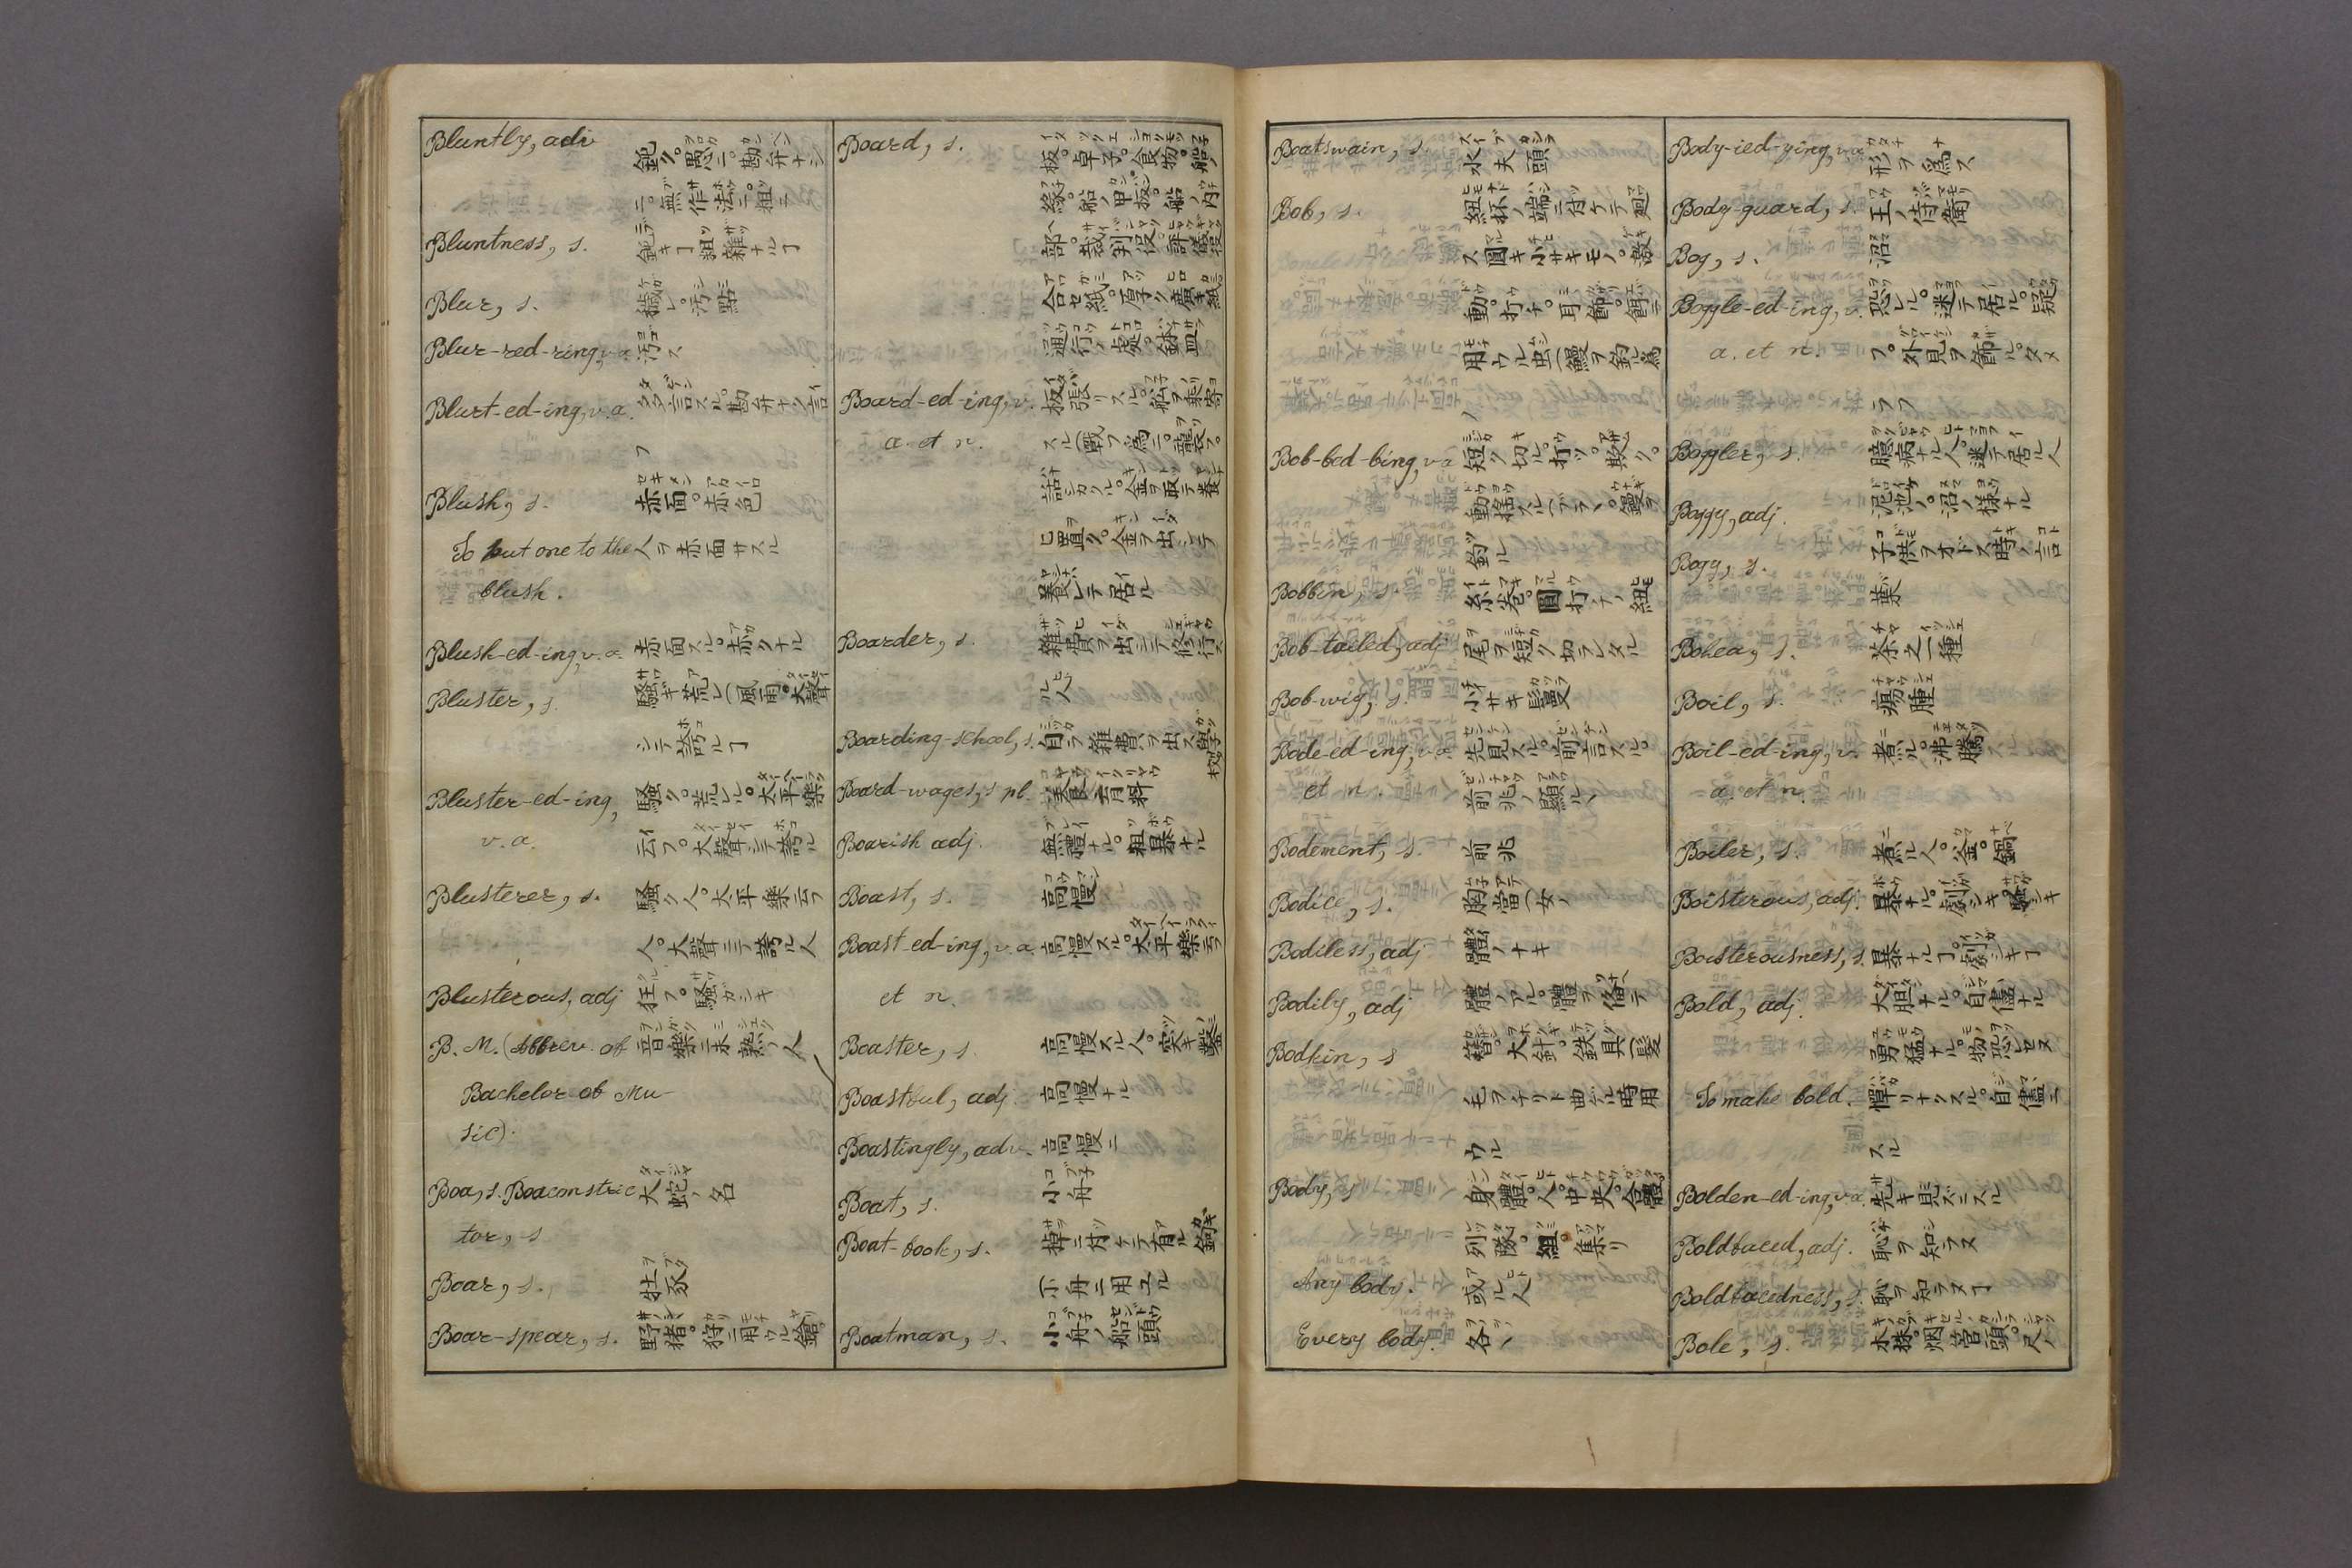 Bluntly, adv 鈍ク。愚ニ。勘弁ナシ
ニ。無作法ニ。粗ニ
Bluntness, s. 鈍キヿ粗雜ナルヿ
Blur, s. 穢レ。汚點
Blur-red-ring, v.a. 汚ス
Blurt-ed-ing, v.a. 多言スル。勘弁ナク言
フ
Blush, s. 赤面。赤色
To put one to the 人ヲ赤面サスル
blush.
Blush-ed-ing, v.a. 赤面スル。赤クナル
Bluster, s. 騒キ荒レ(風雨。大聲
シテ誇ルヿ
Bluster-ed-ing, 騒ク。荒ルル。太平樂
v.a. 云フ。大聲シテ誇ル
Blusterer, s. 騒ク人。太平樂云フ
人。大聲ニテ誇ル人
Blusterous, adj 狂フ。騒ガシキ
B. M. (abbrev. of 音樂ニ未熟ノ人
Bachelor of Mu-
sic).
Boa, s. Boaconstric 大蛇ノ名
tor, s
Boar, s. 牡豕
Boar-spear, s. 野猪。狩ニ用ウル鎗。
Board, s. 板。卓子。食物。船ノ
縁。船ノ甲板。船ノ内
部。裁判役。評儀役
合セ紙。厚ク廣キ紙
通行ノ處。鉢皿
Board-ed-ing, v. 板張リスル。船ヲ乗寄
a. et n. スル(戰フ為ニ。襲フ。
話シカクル。金ヲ取テ養
ヒ置ク。金ヲ出シテ
養レテ居ル
Boarder, s. 雜費ヲ出シテ修行ス
ル人
Boarding-school, s. 自ラ雜費ヲ出ス學校
Board-wages, s pl. 養育料
Boarish adj. 無禮ナル。粗暴ナル
Boast, s. 高慢
Boast-ed-ing, v.a. 高慢スル。太平樂云フ
et n.
Boaster, s. 高慢スル人。突キ鑿
Boastful, adj. 高慢ナル
Boastingly, adv. 高慢ニ
Boat, s. 小舟
Boat-hook, s. 棹ニ付ケテ有ル鉤
小舟ニ用ユル
Boatman, s. 小舟ノ船頭
Boatswain, s. 水夫頭
Bob, s. 紐抔ノ端ニ付ケテ廻
ス圓キ小サキモノ。發
動。打チ。耳飾。餌ニ
用ウル虫(鰻ヲ釣ル為
ノ
Bob-bed-bing, v.a 短ク切ル。打ツ。欺ク。
動揺スル(ブラヽ。鰻ヲ
釣ル
Bobbin, s. 糸巻。圓打チノ紐
Bob-tailed, adj 尾ヲ短ク切ラレタル
Bob-wig, s. 小サキ鬘
Bode-ed-ing, v.a 先見スル。前言スル。
et n. 前兆ノ顯ルヽ
Bodement, s. 前兆
Bodice, s. 胸當(女ノ
Bodiless, adj 體ノナキ
Bodily, adj 體ノアル。體ヲ備ヘテ
Bodkin, s 簪。大針。鉄具(髪
毛ヲチリト曲ゲル時用
ウル
Body, s 身體。人。中央。合體。
列。隊。組。集リ
Any body. 或ル人
Every body. 各ヽ
Body-ied-ying, v.a 形ヲ為ス
Body-guard, s. 王ノ侍衛
Bog, s. 沼
Boggle-ed-ing, v. 恐レル。迷テ居ル。疑
a. et n. フ。外見ヲ飾ル。タメ
ラフ
Boggler, s. 臆病ナル人。迷テ居ル人
Boggy, adj. 泥池ノ。沼ノ様ナル
Bogy, s. 子供ヲオドス時ノ言
葉
Bohea, s. 茶之一種
Boil, s. 瘍腫
Boil-ed-ing, v. 煮ル。沸騰
a. et n.
Boiler, s. 煮ル人。釜。鍋
Boisterous, adj. 暴ナル。劇シキ。騒シキ
Boisterousness, s. 暴ナルヿ。劇シキヿ
Bold, adj. 大胆ナル。自儘ナル
勇猛ナル。物恐セヌ
To make bold. 憚リナクスル。自儘ニ
スル
Bolden-ed-ing, v.a.
Boldfaced, adj. 恥ヲ知ラヌ
Boldfacedness, s. 恥ヲ知ラヌヿ
Bole, s. 木株。烟管頭。尺ノ